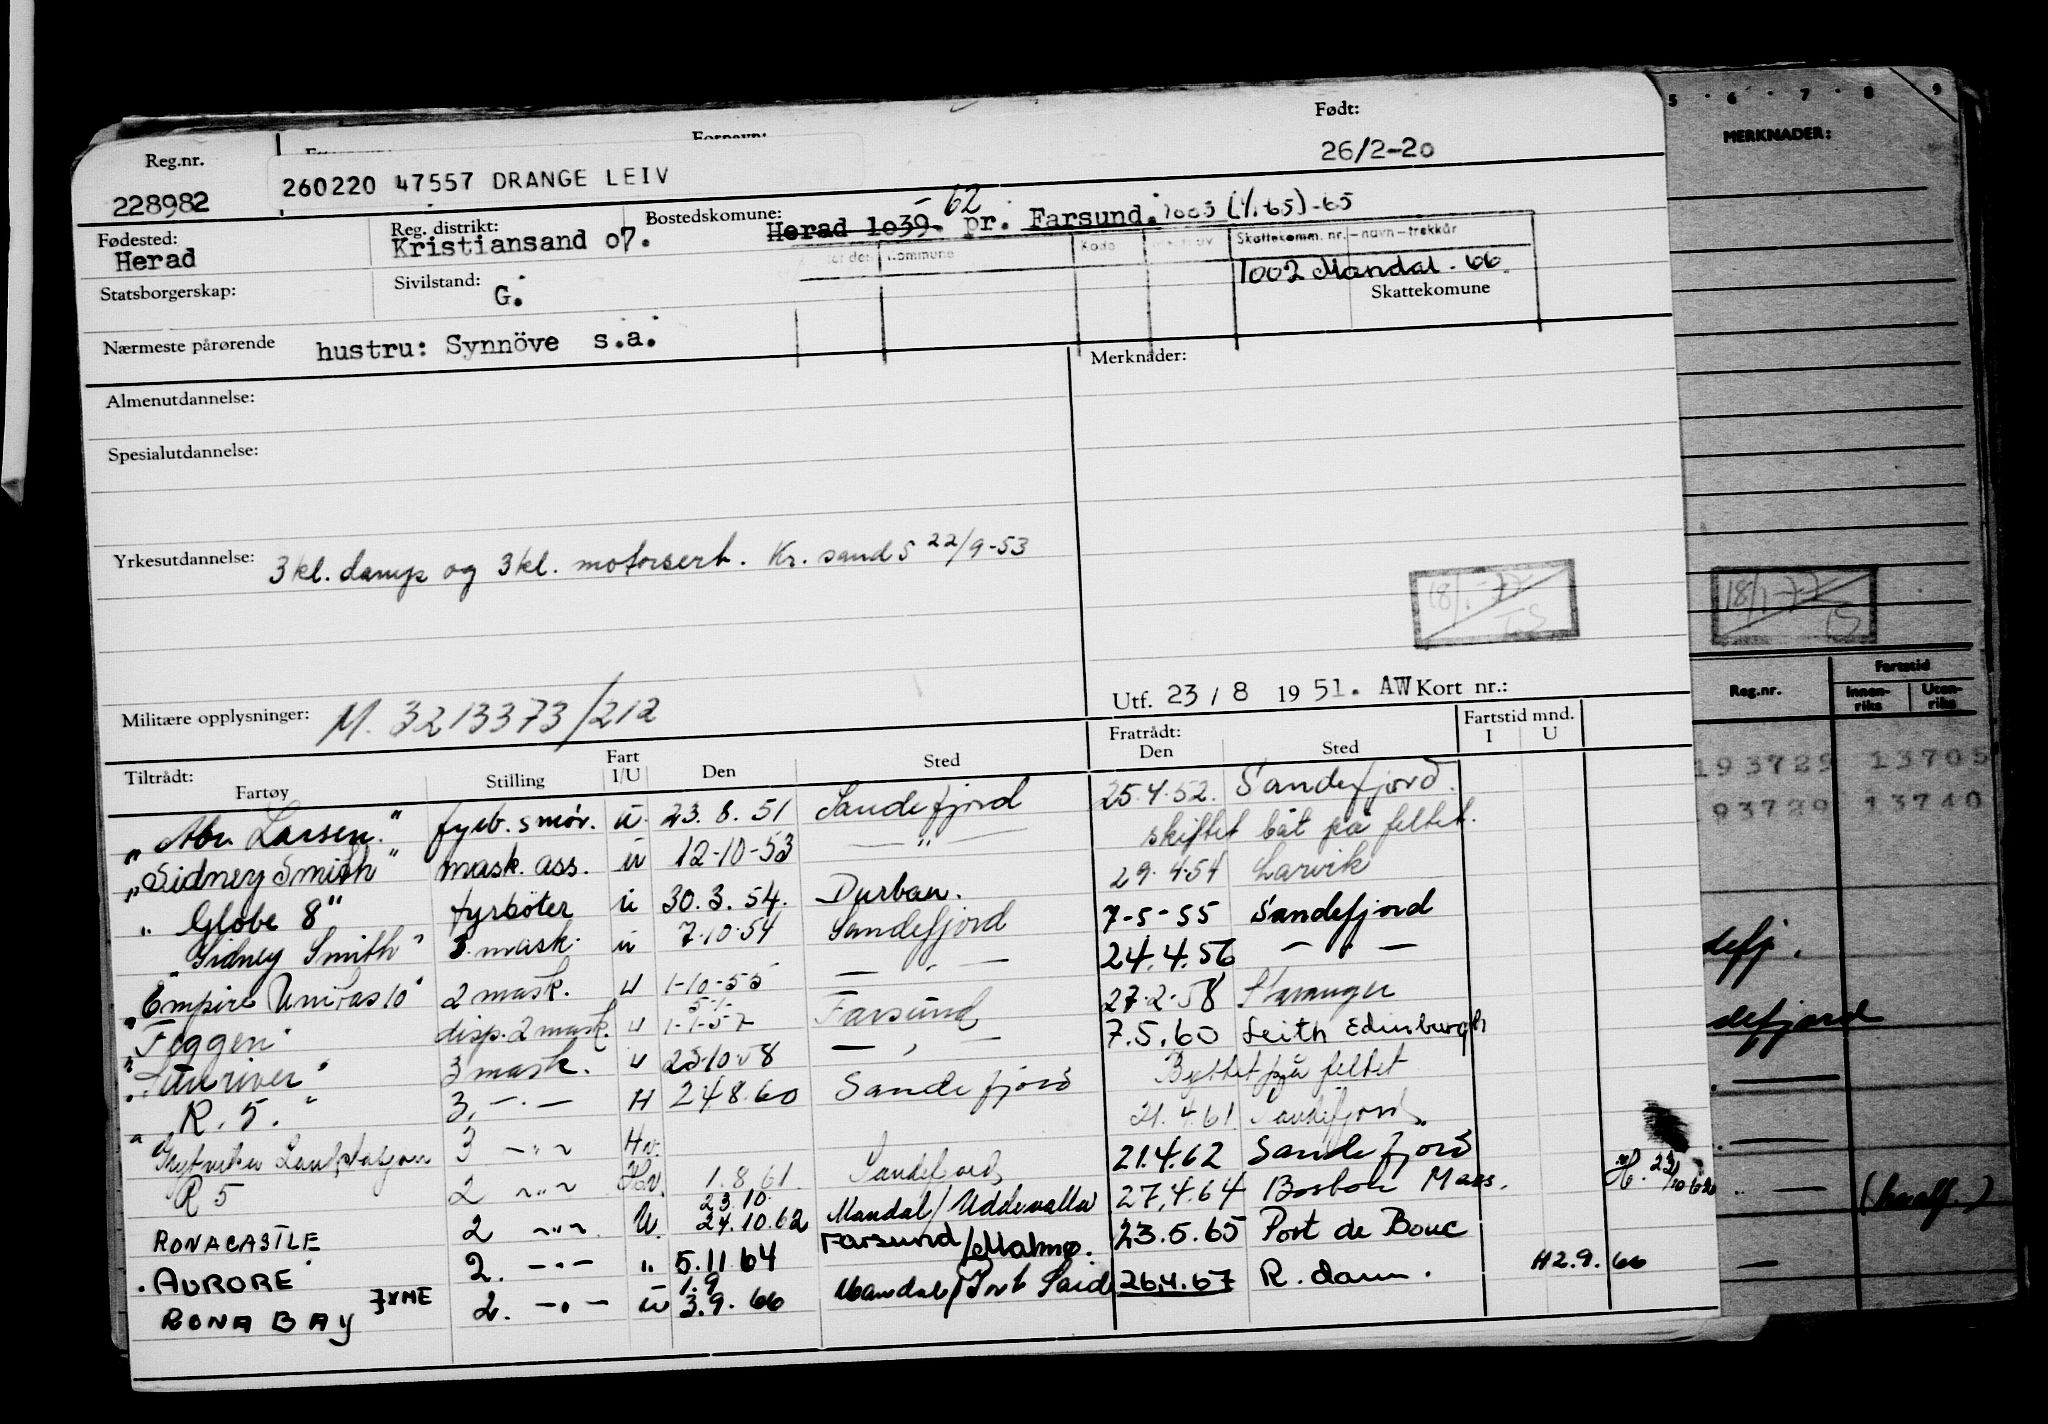 Reg.nr.
228982
Fornavn:
260220 47557 DRANGE LEIV
Født:
26/2-20
Fødested:
Herad
Reg. distrikt:
Kristiansand 07.
Bostedskomune:
Herad 1039- 62 pr. Farsund. 1003 (1/1.65)-65
Statsborgerskap:
Sivilstand:
G.
Kommune Kode Skattekomm. nr.-navn-trekkår
1002 Mandal. 66.
Skattekomune
Nærmeste pårørende hustru: Synnöve s.a.
Merknader:
Almenutdannelse:
Spesialutdannelse:
Yrkesutdannelse: 3 kl. damp og 3 kl. motorsert. Kr. sand S 22/9-53
18/1-77
Militære opplysninger: M. 3213373/212
Utf. 23 / 8 1951. AW Kort nr.:
Tiltrådt: Fartøy Stilling Fart I/U Den Sted Fratrådt: Den Sted Fartstid mnd. I U
"Abr. Larsen." fyrb. smör. u. 23. 8. 51 Sandefjord 25.4.52. Sandefjord.
"Sidney Smith" mask. ass. u 12-10-53 — " — skiftet båt på feltet.
" Globe 8" fyrböter u 30. 3. 54. Durban. 29.4.54 Larvik
"Sidney Smith" 3. mask. u 7.10.54 Sandefjord 7-5-55 Sandefjord
"Empire Unitas 10" 2 mask. u 1-10-55 — " — 24.4.56 — " —
"Feggen" disp. 2 mask. u 5-1- 1-1-57 Farsund 27-2-58 Stavanger
"Sunriver" 3 mask. u 23.10.58 — " — 7.5.60 Leith Edinburgh
" R. 5. " 3. — " — H 24.8.60 Sandefjord Byttet på feltet
Grytviken Landstasjon 3 — " — Hv. 21.4.61 Sandefjord
R 5 2 — " — Hv. 1.8.61. Sandefjord 21.4.62 Sandefjord
RONACASTLE 2 — " — U. 23.10. 24.10.62 Mandal/Uddevalla 27.4.64 Boston Mass.
AURORE 2. — " — " 5.11.64 Farsund/Malmø. 23.5.65 Port de Bouc
RONA BAY 2. — " — u 1.9 3.9.66 Mandal/Port Said 26.4.67 R. dam. H2.9.66
5 . 6 . 7 . 8 9
MERKNADER:
18/1-77
Reg.nr.
Fartstid
Innen-riks Uten-riks
193729 13705
93729 13740
defj.
defjord
(hvalf.)